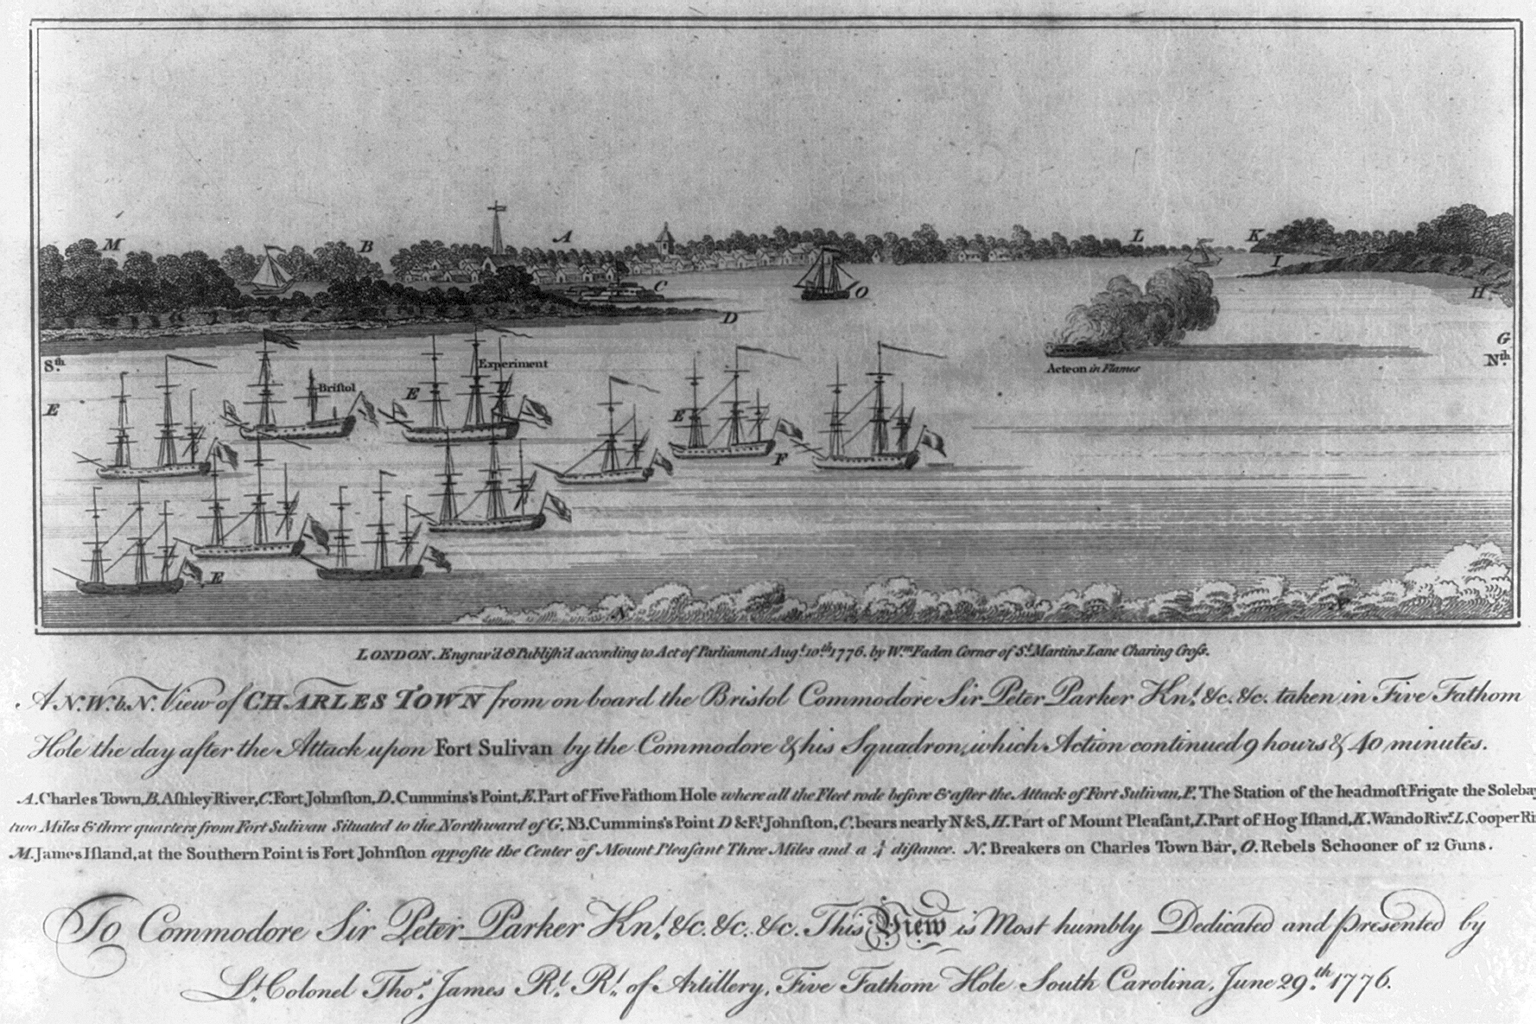 M
B
A
L
K
I
C
O
H
D
G
Sth.
Experiment
Acteon in Flames
Nth.
Bristol
E
E
E
F
E
N
LONDON. Engrav'd & Publish'd according to Act of Parliament Augt. 10th. 1776. by Wm. Faden Corner of St. Martins Lane Charing Cross.
A N.W.b.N. View of CHARLES TOWN from on board the Bristol Commodore Sir Peter Parker Knt. &c. &c. taken in Five Fathom
Hole the day after the Attack upon Fort Sulivan by the Commodore & his Squadron, which Action continued 9 hours & 40 minutes.
A. Charles Town, B. Ashley River, C. Fort Johnston, D. Cummins's Point, E. Part of Five Fathom Hole where all the Fleet rode before & after the Attack of Fort Sulivan, F. The Station of the headmost Frigate the Solebay
two Miles & three quarters from Fort Sulivan Situated to the Northward of G. NB. Cummins's Point D & Ft. Johnston, C. bears nearly N & S, H. Part of Mount Pleasant, I. Part of Hog Island, K. Wando Rivr. L. Cooper Ri
M. James Island, at the Southern Point is Fort Johnston opposite the Center of Mount Pleasant Three Miles and a ¼ distance. N. Breakers on Charles Town Bar, O. Rebels Schooner of 12 Guns.
To Commodore Sir Peter Parker Knt. &c. &c. &c. This View is Most humbly Dedicated and presented by
Lt. Colonel Thos. James Rl. Rt. of Artillery, Five Fathom Hole South Carolina, June 29th. 1776.